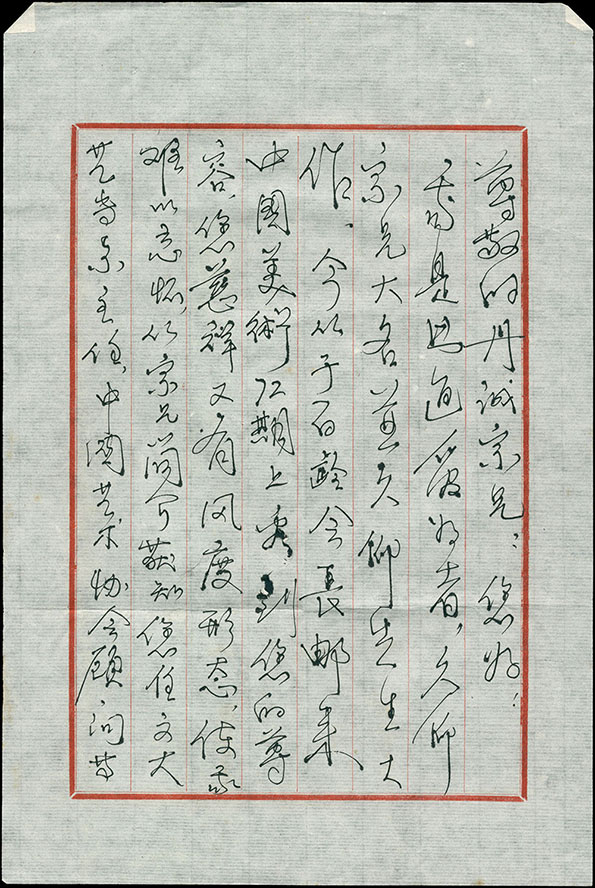 尊敬的丹诚宗兄：您好！
我是 爱好者，久仰
宗兄大名并久仰先生大
作、今从于百龄会长邮来
中国美术72期上看到您的尊
容，您慈祥又有风度形态，使我
难以忘怀，从宗兄简介获知您任文大
艺专系主任，中国艺术协会顾问等